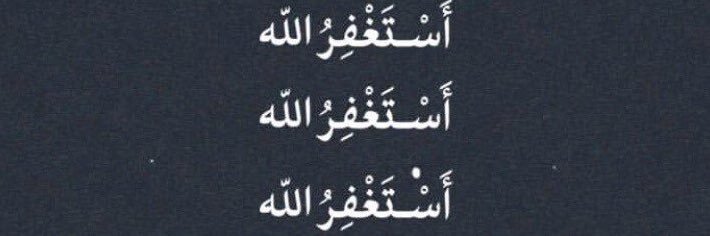 أَسْـتَغْفِرُ اللّه
أَسْـتَغْفِرُ اللّه
أَسْـتَغْفِرُ اللّه